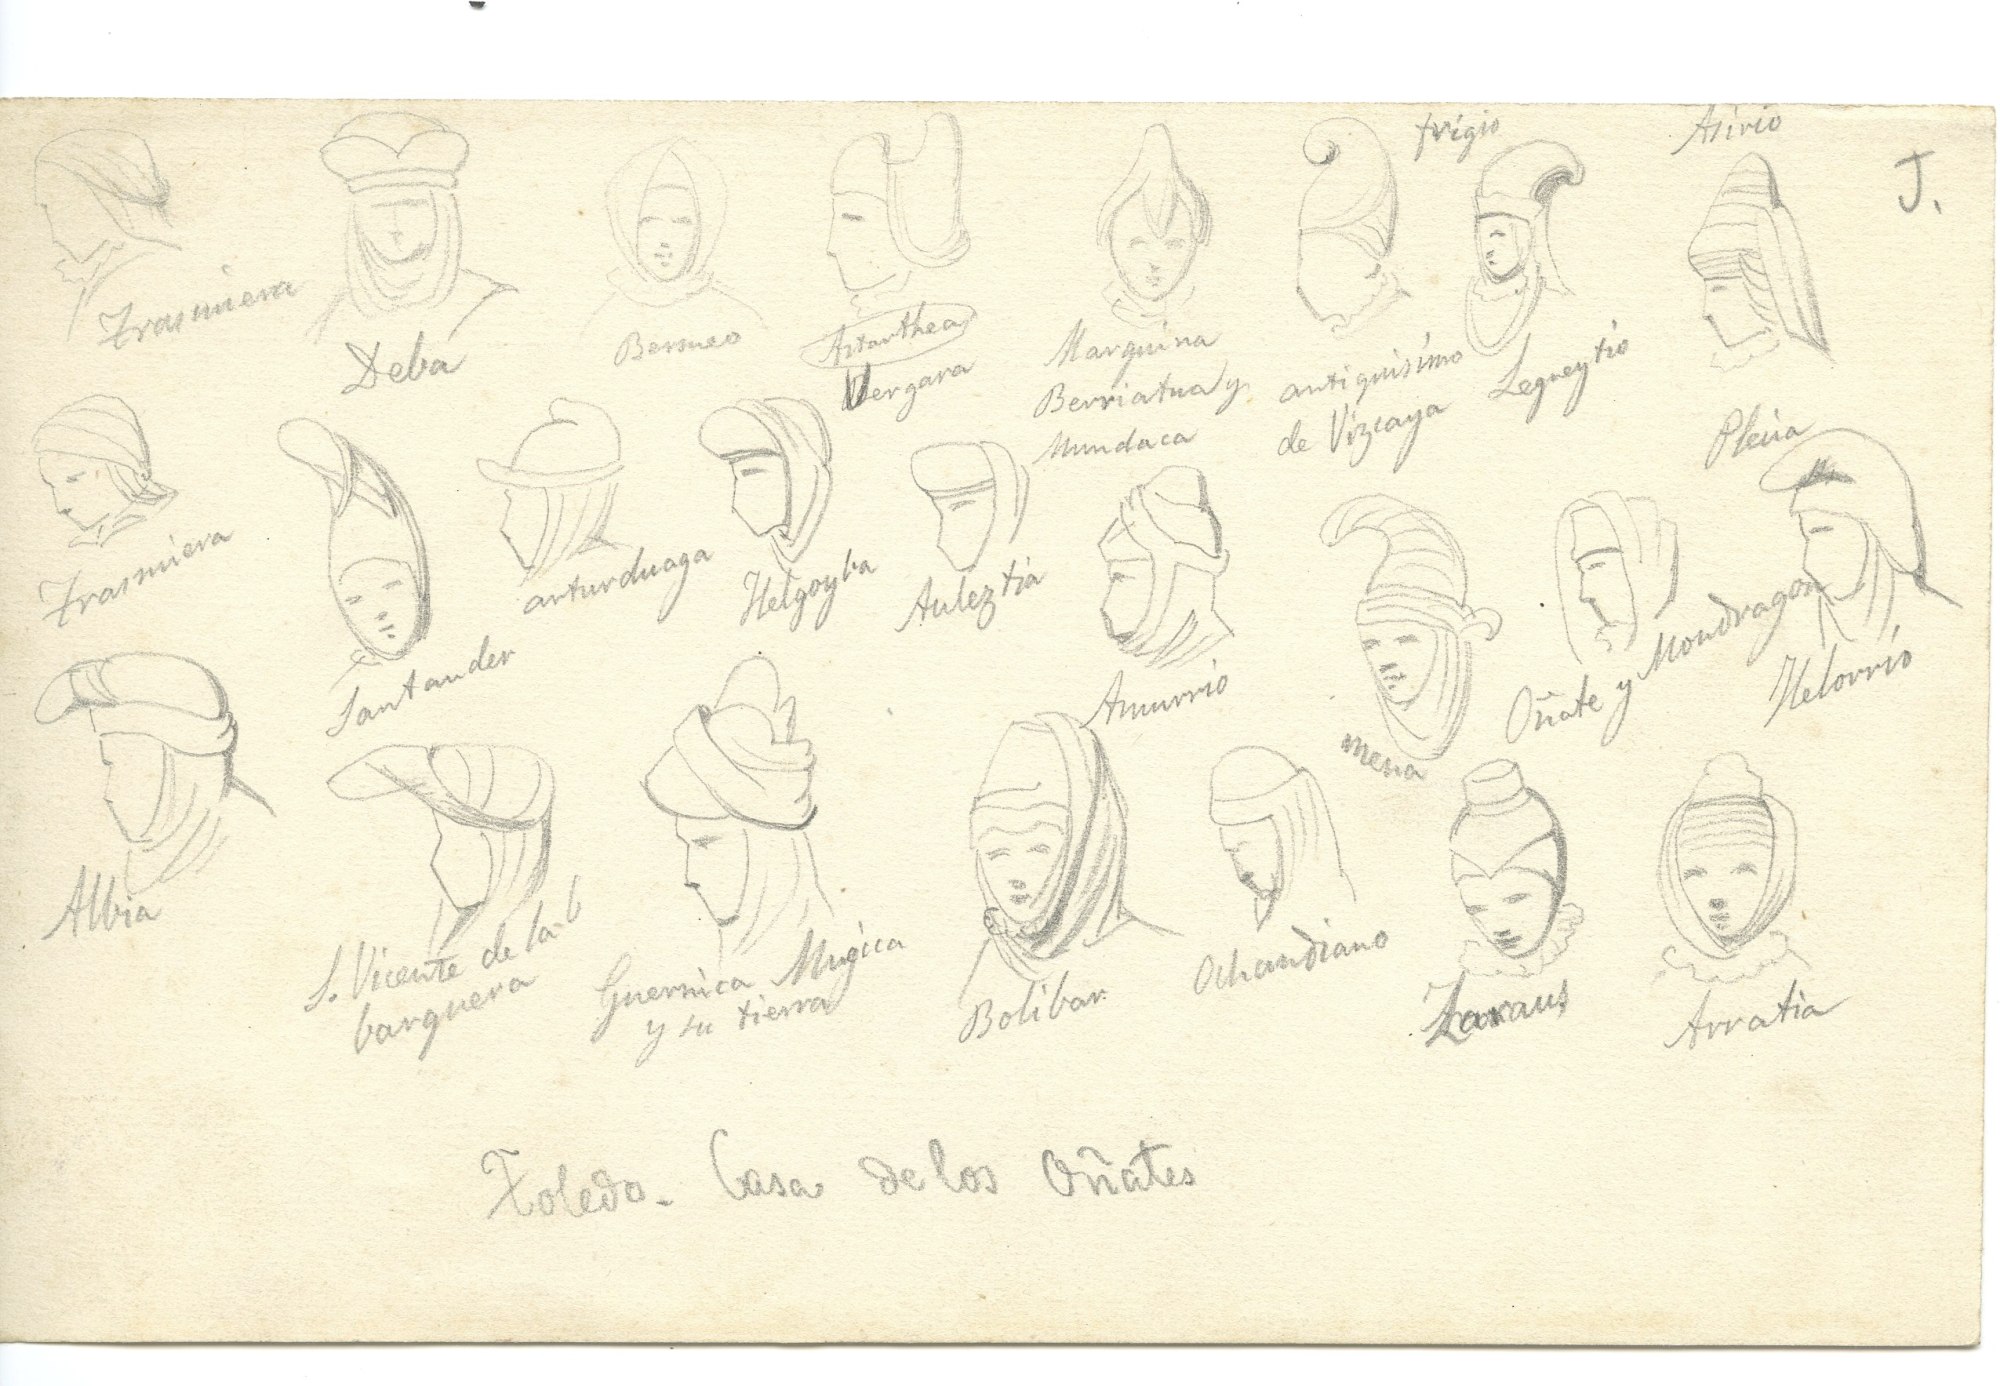 frigio
Asirio
J.
Trasmiera
Deba
Bermeo
Astarthea
Vergara
Marquina
Berriatua y
Mundaca
antiquisimo
de Vizcaya
Lequeytio
Trasmiera
Santander
anturduaga
Helgoyba
Auleztia
Amurrio
mena
Oñate y Mondragon
Helorrio
Albia
S. Vicente de la b
barquera
Guernica Mugica
y su tierra
Bolibar
Ochandiano
Zaraus
Arratia
Toledo - Casa de los Oñates